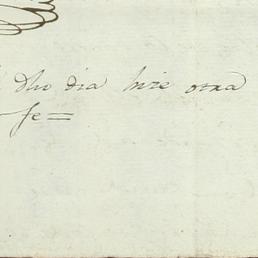 dho dia hize otra
fe=